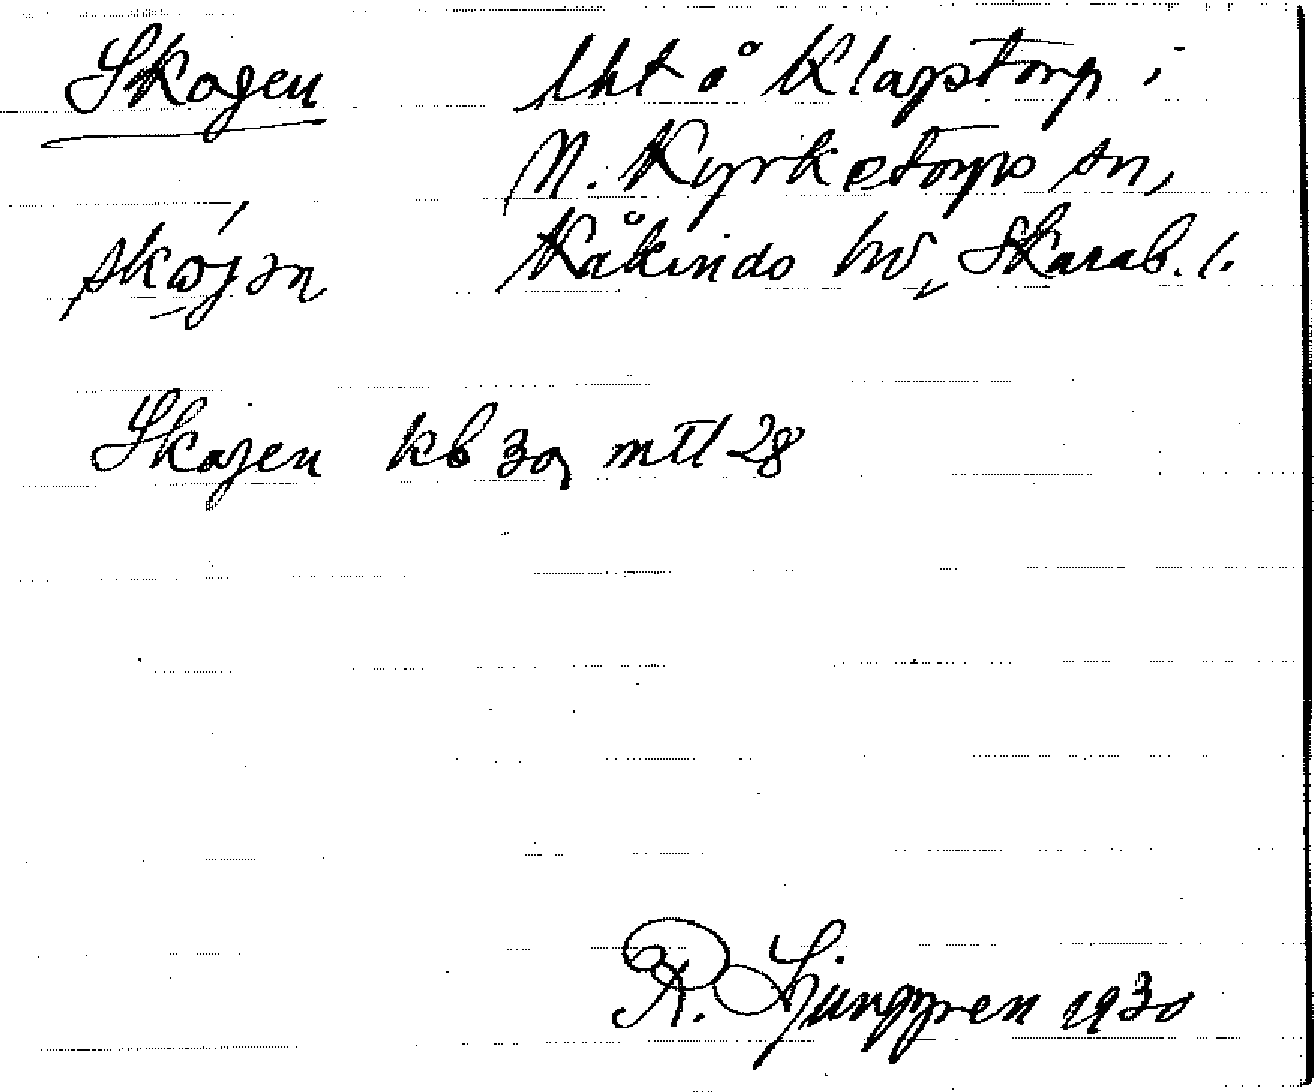 Skogen lht å Klapstorp i
N. Kyrketorps sn,
skoǥɜn Kåkinds hd, Skarab. l.
Skogen kb 30, mtl 28
R. Ljunggren 1930